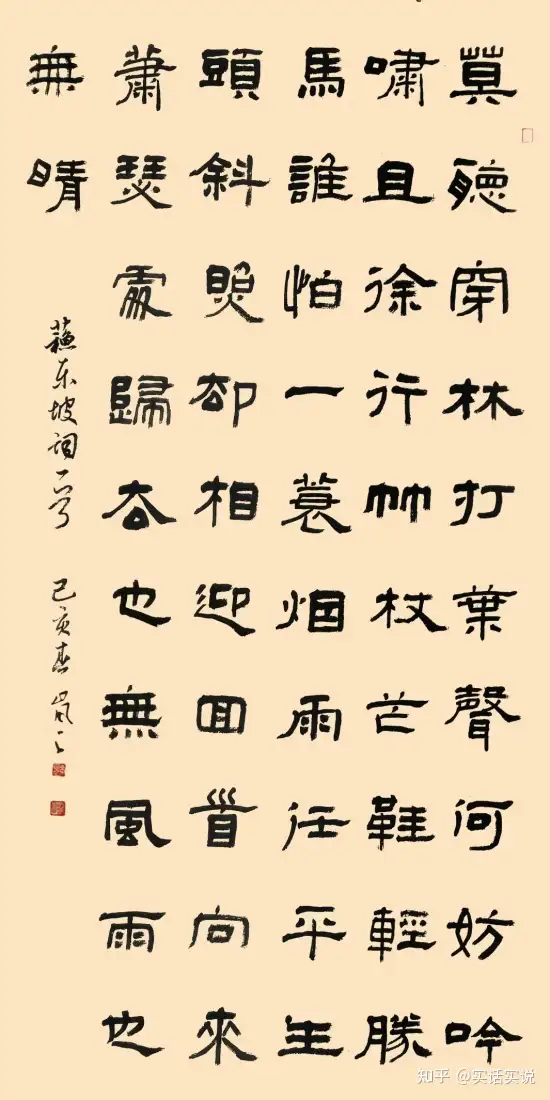 莫聽穿林打葉聲何妨吟
嘯且徐行竹杖芒鞋輕勝
馬誰怕一蓑烟雨任平生
頭斜照却相迎回首向來
蕭瑟處歸去也無風雨也
無晴
蘇东坡詞一首 己亥春
知乎 @实话实说